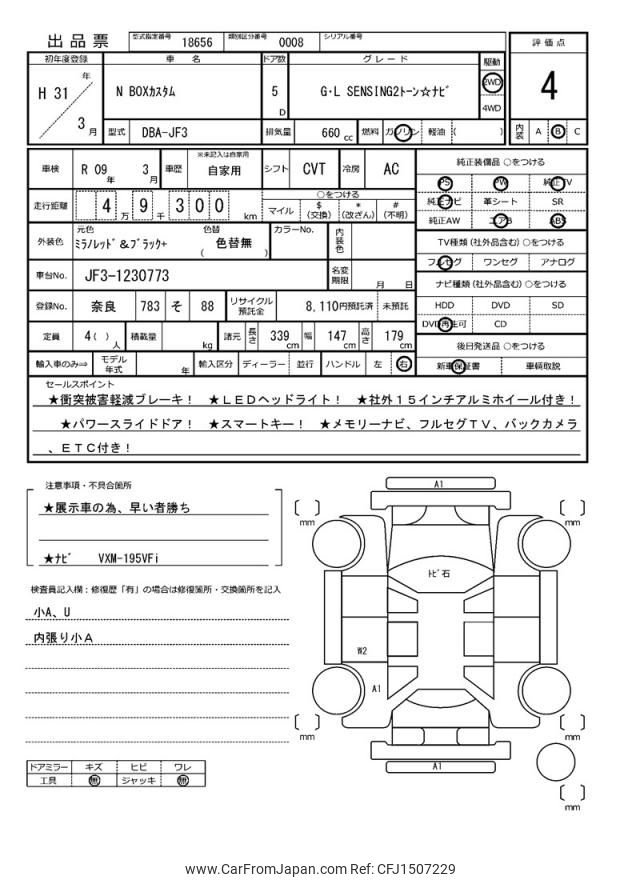 出品票 型式指定番号 18656 類別区分番号 0008 シリアル番号
初年度登録 車 名 ドア数 グレード 駆動 評価点
H 31 年 3 月 N BOXカスタム 5 D G・L SENSING2トーン☆ナビ 2WD 4WD 4
型式 DBA-JF3 排気量 660 cc 燃料 ガソリン 軽油 ( ) 内装 A B C
車検 R 09 年 3 月 車歴 ※未記入は自家用 自家用 シフト CVT 冷房 AC 純正装備品 ○をつける
PS PW 純正TV
走行距離 4 万 9 千 3 0 0 km ○をつける 純正ナビ 革シート SR
マイル $(交換) *(改ざん) #(不明) 純正AW エアB ABS
外装色 元色 ミラノレッド&ブラック+ 色替 ( 色替無 ) カラーNo. 内装色 TV種類 (社外品含む) ○をつける
フルセグ ワンセグ アナログ
車台No. JF3-1230773 名変期限 月 日 ナビ種類 (社外品含む) ○をつける
登録No. 奈良 783 そ 88 リサイクル預託金 8,110円預託済 未預託 HDD DVD SD
DVD再生可 CD
定員 4( )人 積載量 kg 諸元 長さ 339 cm 幅 147 cm 高さ 179 cm 後日発送品 ○をつける
輸入車のみ⇒ モデル年式 年 輸入区分 ディーラー 並行 ハンドル 左 右 新車保証書 車輌取説
セールスポイント
★衝突被害軽減ブレーキ! ★LEDヘッドライト! ★社外15インチアルミホイール付き!
★パワースライドドア! ★スマートキー! ★メモリーナビ、フルセグTV、バックカメラ
、ETC付き!
注意事項・不具合箇所
★展示車の為、早い者勝ち
★ナビ VXM-195VFi
検査員記入欄:修復歴「有」の場合は修復箇所・交換箇所を記入
小A、U
内張り小A
ドアミラー キズ ヒビ ワレ
工具 無 ジャッキ 無
A1
mm mm
トビ石
W2
A1
mm mm
A1
mm
www.CarFromJapan.com Ref: CFJ1507229